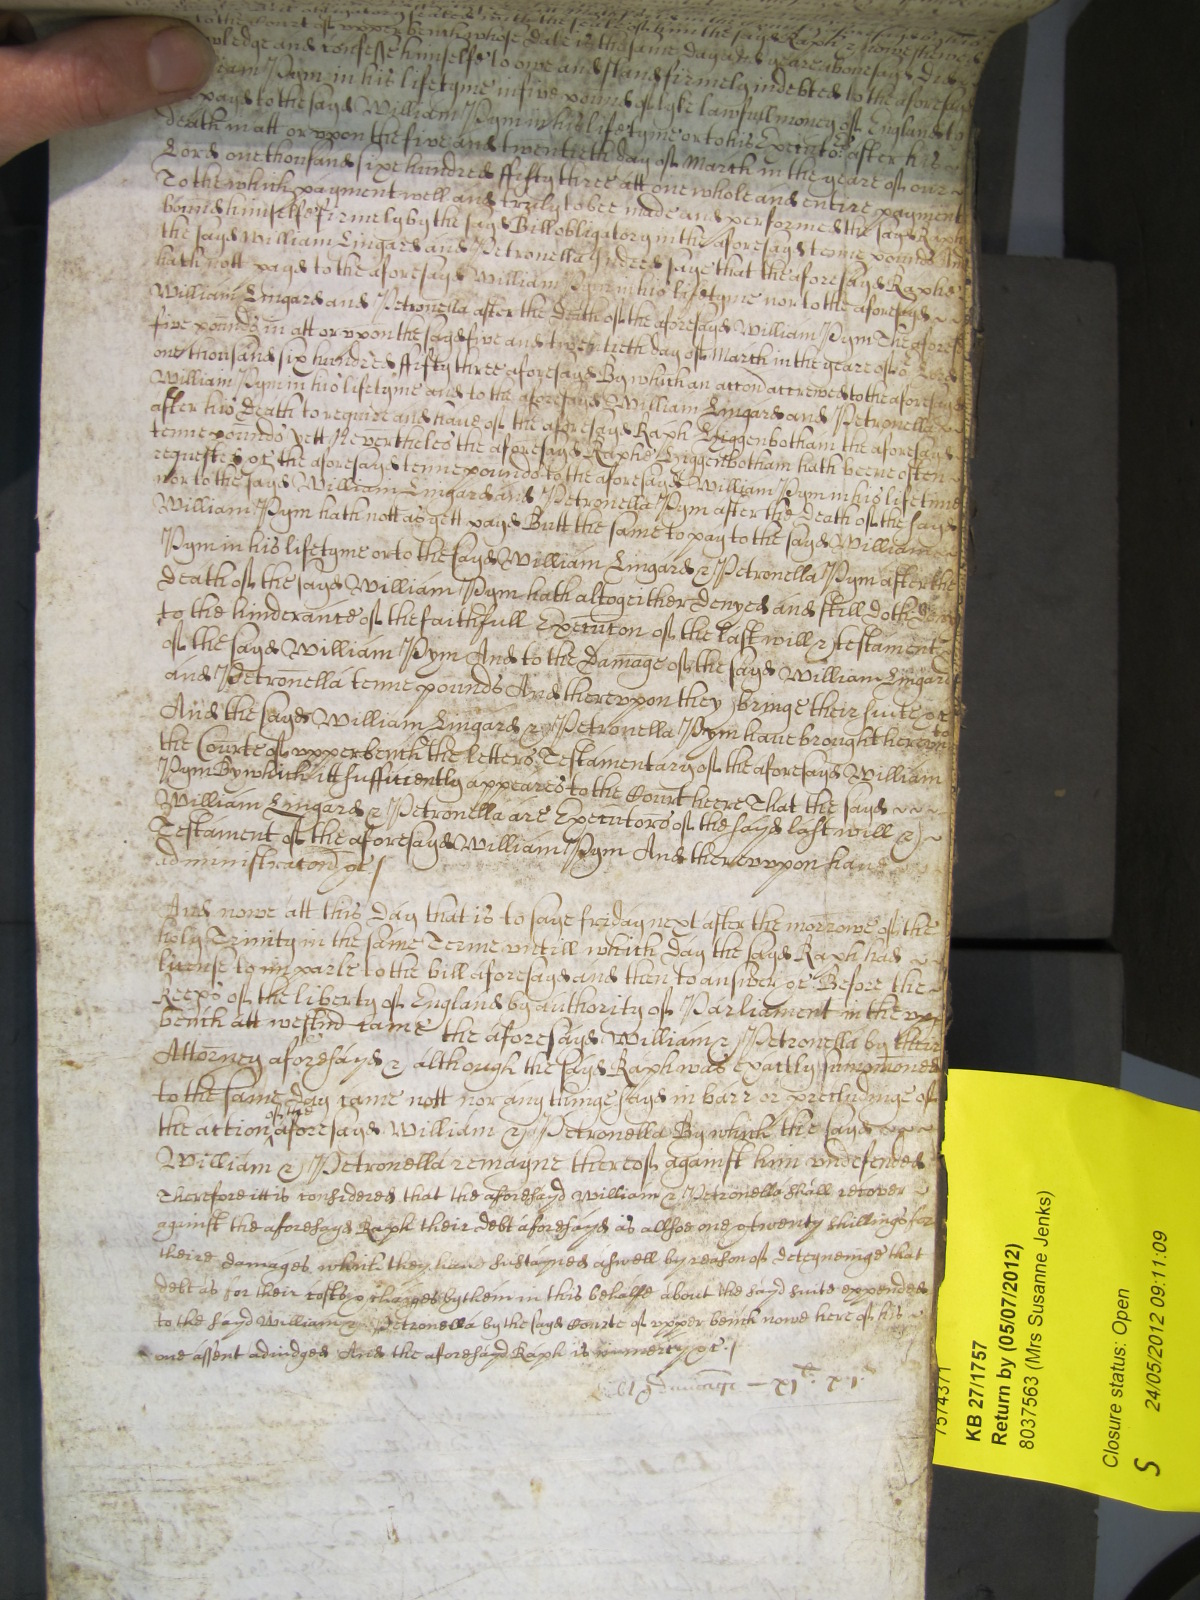 to the Court of upper bench whose date is the same day and yeare abovesayd Did
wledge and confesse himselfe to owe and stand firmely indebted to the aforesayd
iam Pym in his lifetyme in five pounds of like lawfull money of England to
payd to the sayd William Pym in his lifetyme or to his Executors after his
death in att or vpon the five and twentieth day of March in the yeare of our
Lord one thousand sixe hundred fifty three att one whole and entire payment
To the which payment well and truly to bee made and performed the sayd Raph
bound himselfe firmely by the sayd Bill obligatory in the aforesayd tenne pounds And
the sayd William Lingard and Petronella Indeed saye that the aforesayd Raphe
hath nott payd to the aforesayd William Pym in his lifetyme nor to the aforesayd
William Lingard and Petronella after the death of the aforesayd William Pym The afores
five pounds in att or vpon the sayd five and twentieth day of March in the yeare of or Lord
one thousand six hundred fifty three aforesayd By which an accon accrewed to the aforesayd
William Pym in his lifetyme and to the aforesayd William Lingard and Petronella
after his Death to require and have of the aforesayd Raph Higgenbotham the aforesayd
tenne pounds yett Nevertheles the aforesayd Raphe Higgenbotham hath beene often
requested &c the aforesayd tenne pounds to the aforesayd William Pym in his lifetime
nor to the sayd William Lingard and Petronella Pym after the death of the sayd
William Pym hath nott as yett payd Butt the same to pay to the sayd William
Pym in his lifetyme or to the sayd William Lingard & Petronella Pym after the
death of the sayd William Pym hath altogeither denyed and still doth deny
to the hinderance of the faithfull Execucon of the last will & testament
of the sayd William Pym And to the Damage of the sayd William Lingard
and Petronella tenne pounds And therevpon they bringe their suite &c
And the sayd William Lingard & Petronella Pym have brought here into
the Courte of vpper bench the letters Testamentary of the aforesayd William
Pym By which itt sufficiently appeares to the Court heere That the sayd
William Lingard & Petronella are Executors of the sayd last will &
Testament of the aforesayd William Pym And therevpon have
administracon &c /
And nowe att this Day that is to saye fryday next after the morrowe of the
holy Trinity in the same Terme vntill which day the sayd Raph had
license to imparle to the bill aforesayd and then to answer &c Before the
Keeprs of the liberty of England by authority of Parliament in the vpp
bench att westmr came the aforesayd William & Petronella by their
Attorney aforesayd & although the sayd Raph was exactly summoned
to the same day came nott nor any thinge sayd in barr or precludinge of
the action of the aforesayd William & Petronella By which the sayd
William & Petronella remayne thereof against him vndefended
Therefore itt is considered that the aforesayd William & Petronella shall recover
against the aforesayd Raph their debt aforesayd as allsoe one & twenty shillings for
theire damages which they have sustayned aswell by reason of deteyneinge that
debt as for their costs & charges by them in this behalfe about the sayd suite expended
to the sayd William & Petronella by the sayd Courte of vpper bench nowe here of his
owne assent adiudged And the aforesayd Raph is in mercy &c /
KB 27/1757
Return by (05/07/2012)
8037563 (Mrs Susanne Jenks)
Closure status: Open
24/05/2012 09:11:09
S